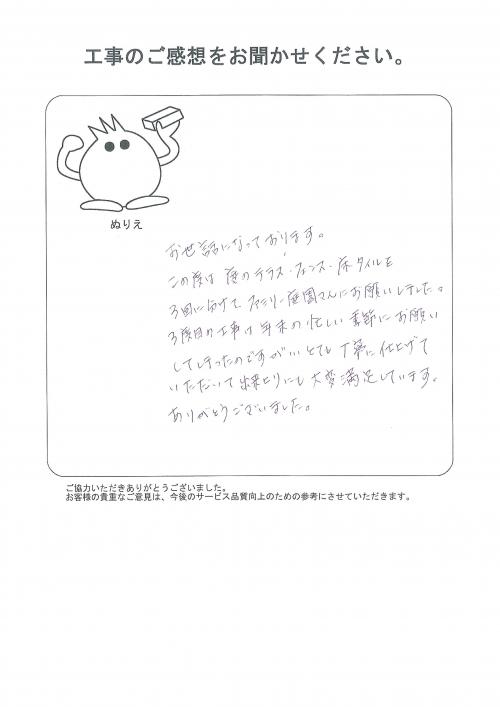 工事のご感想をお聞かせください。
ぬりえ
お世話になっております。
この度は 庭のテラス・フェンス・床タイルを
3回に分けて、ファミリー庭園さんにお願いしました。
3度目の工事は年末の忙しい季節にお願い
してしまったのですが、とても丁寧に仕上げて
いただいて 出来上りにも 大変満足しています。
ありがとうございました。
ご協力いただきありがとうございました。
お客様の貴重なご意見は、今後のサービス品質向上のための参考にさせていただきます。